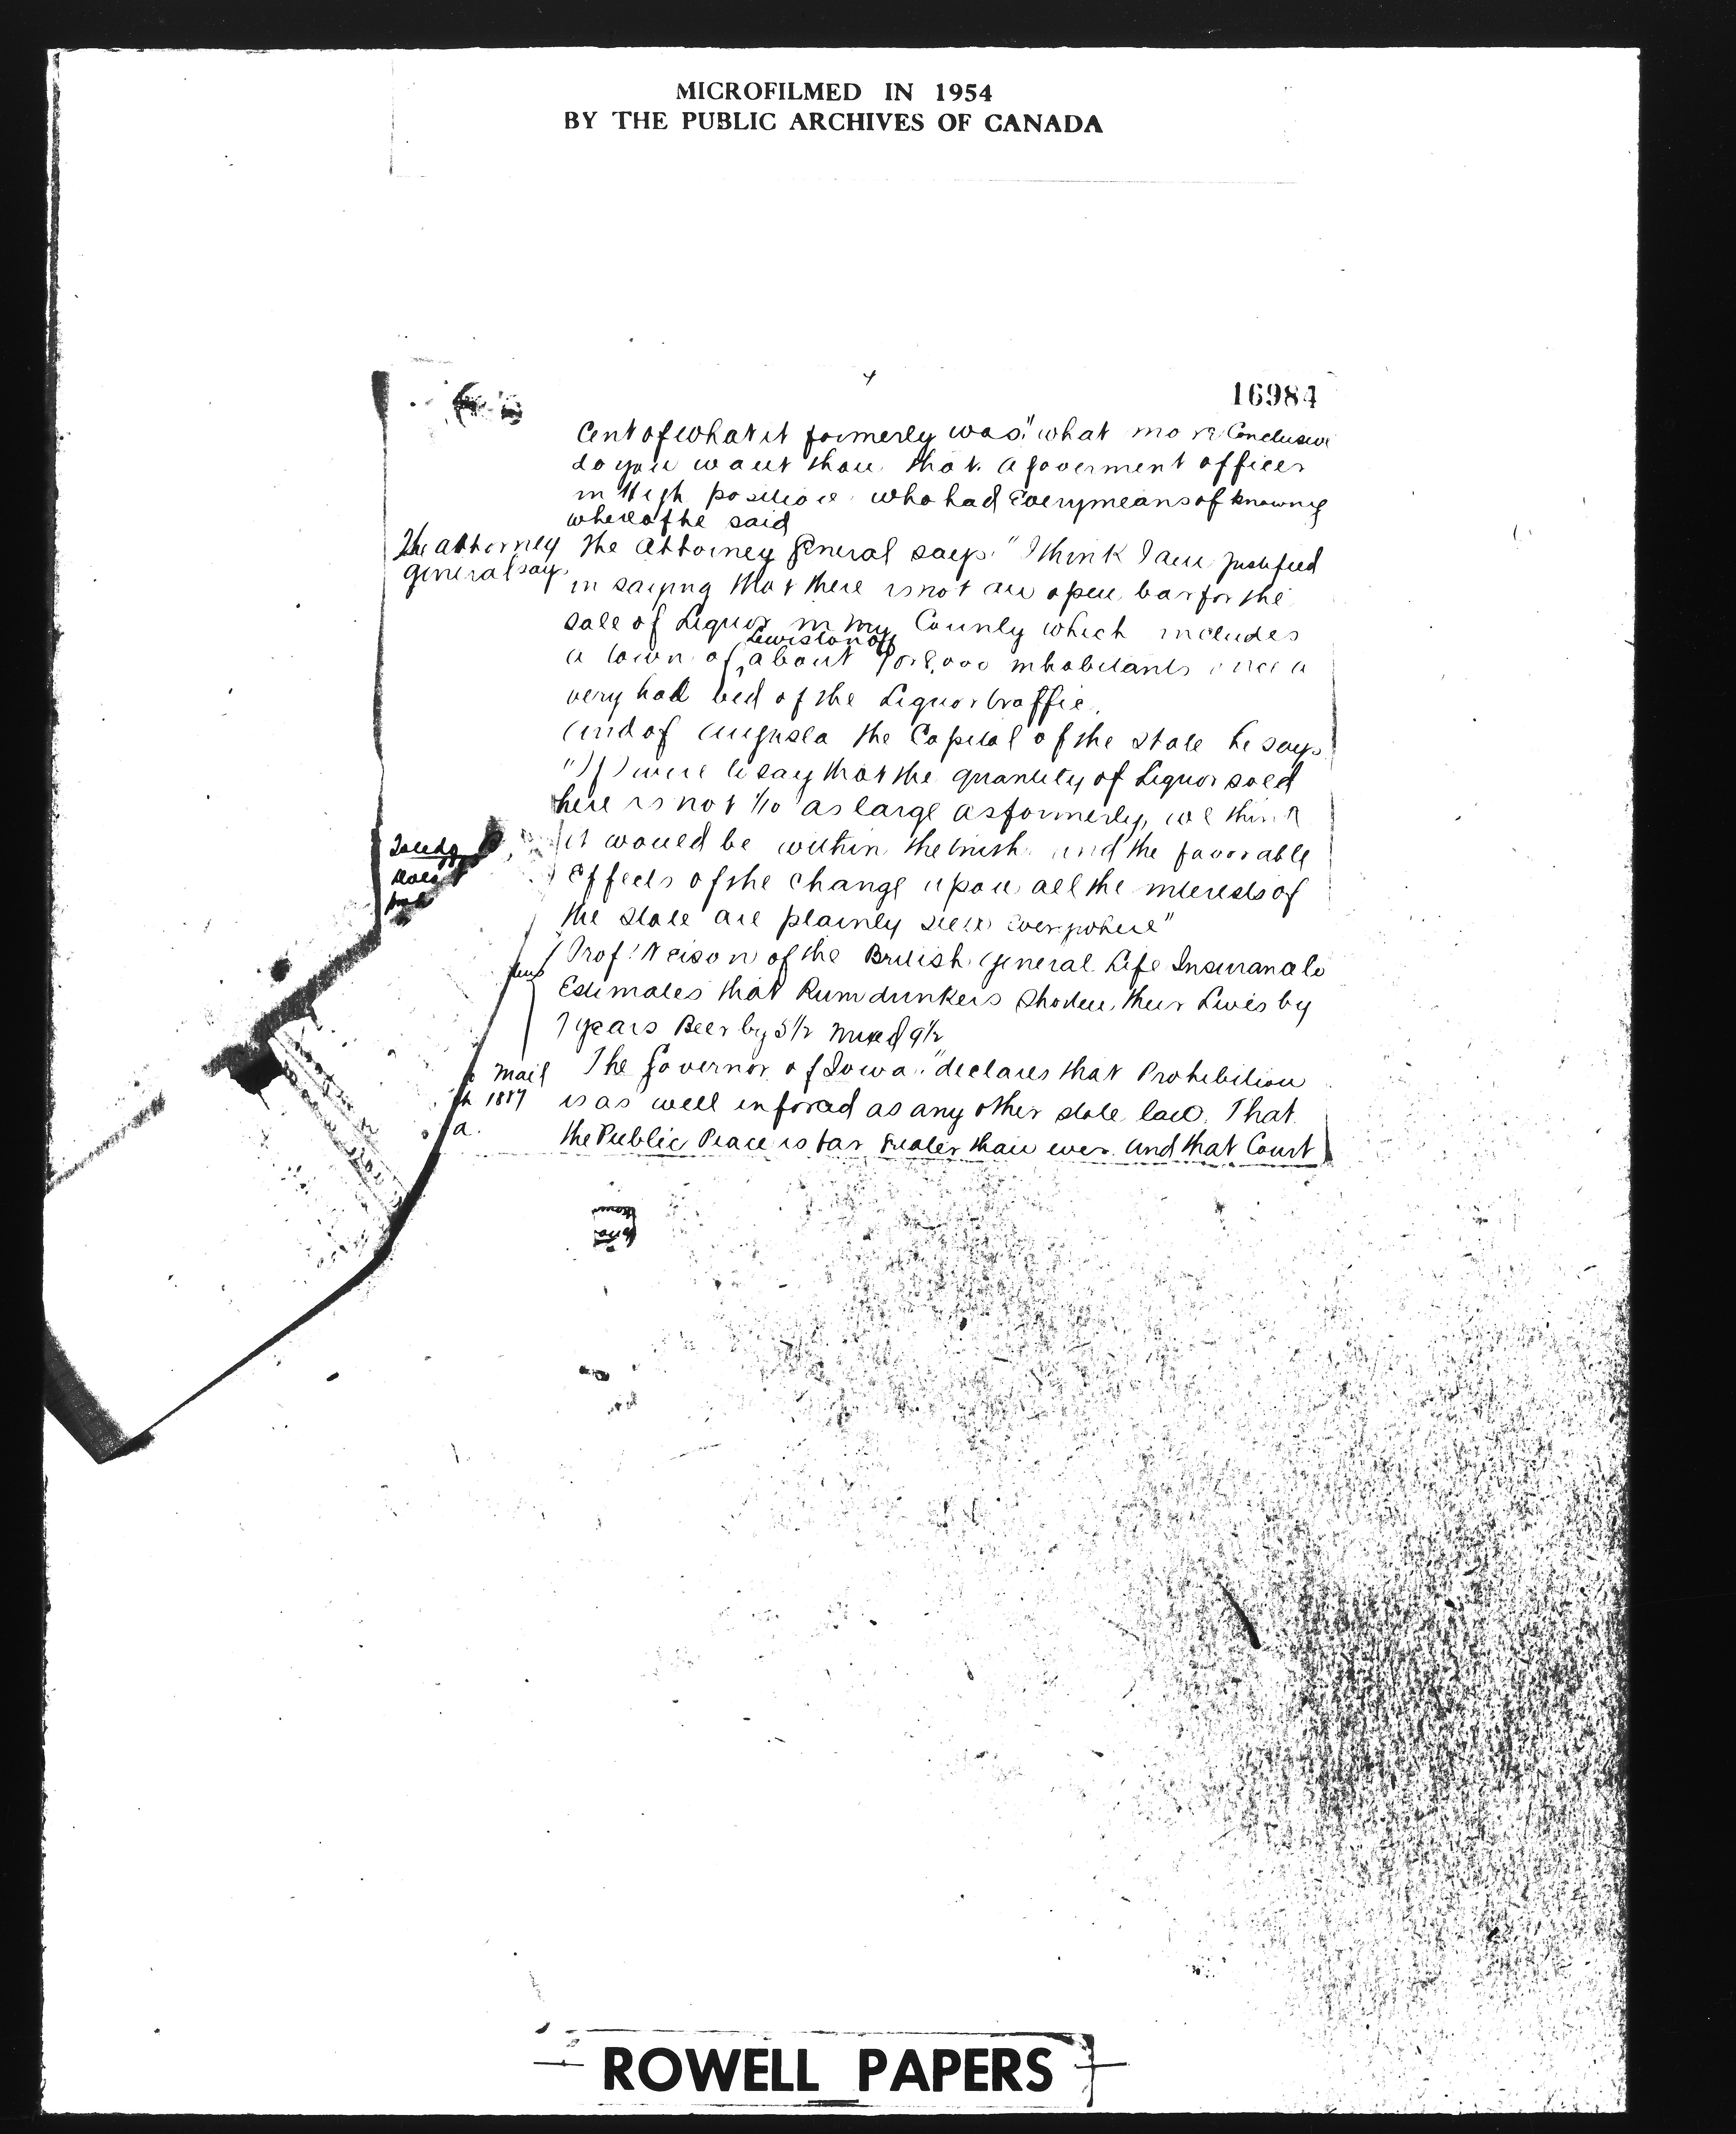 MICROFILMED IN 1954
BY THE PUBLIC ARCHIVES OF CANADA
4
16984
Cent of what it formerly was" what more Conclusive
do you want than that a goverment officer
in High position who had Every means of knowing
whereof he said
The attorney
general says
The Attorney General says "I think I am justified
in saying that there is not an open bar for the
sale of Liquor in my County which includes
Lewiston of
a town of about 7 or 8,000 inhabitants once a
very had bed of the Liquor traffic.
And of Augusta the Capital of the state he says
"If I were to say that the quantity of Liquor sold
here is not 1/10 as large as formerly, we think
it would be within the truth and the favorable
Effects of the change upon all the interests of
the state are plainly seen Everywhere"
Prof. Neison of the British General Life Insurance Co
Estimates that Rum drinkers Shorten their Lives by
7 years Beer by 5 1/2 mixed 9 1/2
Mail
1887
a.
The Governor of Iowa "declares that Prohibition
is as well enforced as any other state law. That
the Public Peace is far greater than ever and that Court
ROWELL PAPERS